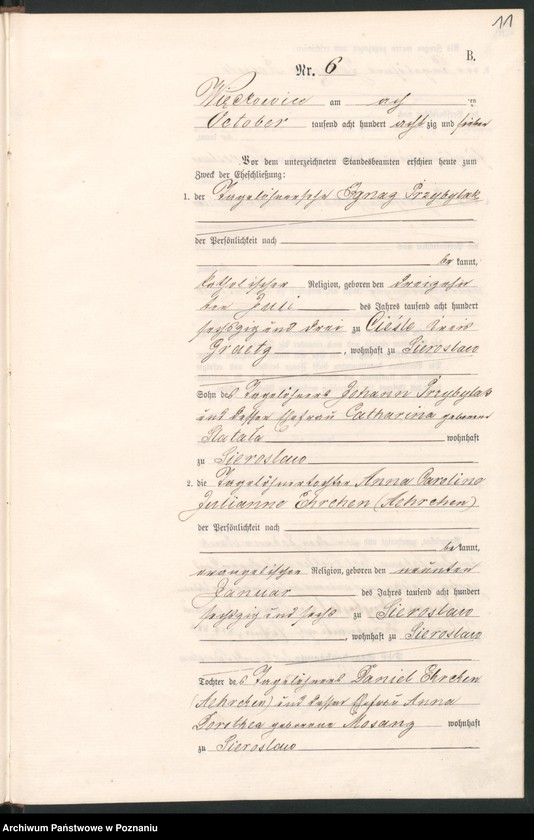 11
B.
Nr. 6
Więckowice am ach ten
October tausend acht hundert achtzig und sieben
Vor dem unterzeichneten Standesbeamten erschien heute zum
Zweck der Eheschließung:
1. der Tagelöhnersohn Ignaz Przybylak
der Persönlichkeit nach
be kannt,
katholischer Religion, geboren den dreizehn
ten Juli des Jahres tausend acht hundert
sechszig und drei zu Cieśle Kreis
Graetz, wohnhaft zu Sieroslaw
Sohn des Tagelöhners Johann Przybylak
und dessen Ehefrau Catharina geborene
Ratala wohnhaft
zu Sieroslaw
2. die Tagelöhnertochter Anna Caroline
Julianna Ehrchen (Aehrchen)
der Persönlichkeit nach
be kannt,
evangelischer Religion, geboren den neunten
Januar des Jahres tausend acht hundert
sechszig und sechs zu Sieroslaw
, wohnhaft zu Sieroslaw
Tochter des Tagelöhners Daniel Ehrchen
(Aehrchen) und dessen Ehefrau Anna
Dorothea geborene Mosang wohnhaft
zu Sieroslaw
Archiwum Państwowe w Poznaniu